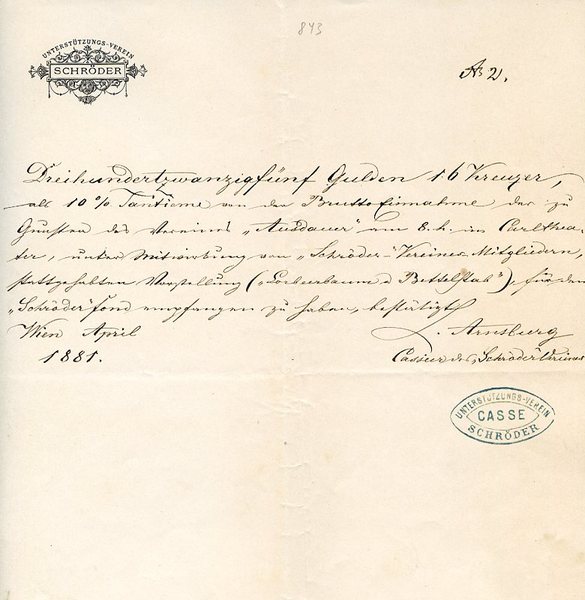 843
UNTERSTÜTZUNGS-VEREIN
SCHRÖDER
No 2.
Dreihundertzwanzigfünf Gulden 16 Kreuzer,
als 10% Tantieme von der Brutto Einnahme der zu
Gunsten des Vereines „Ausdauer" am 8. h. im Carlthea-
ter, unter Mitwirkung von „Schröder"-Vereins-Mitgliedern,
stattgehabten Vorstellung („Lorbeerbaum u Bettelstab"), für den
„Schröder"fond empfangen zu haben, bestätigt
Wien April
L. Arnsburg
1881.
Cassier des „Schröder"Vereines
UNTERSTÜTZUNGS-VEREIN
CASSE
SCHRÖDER